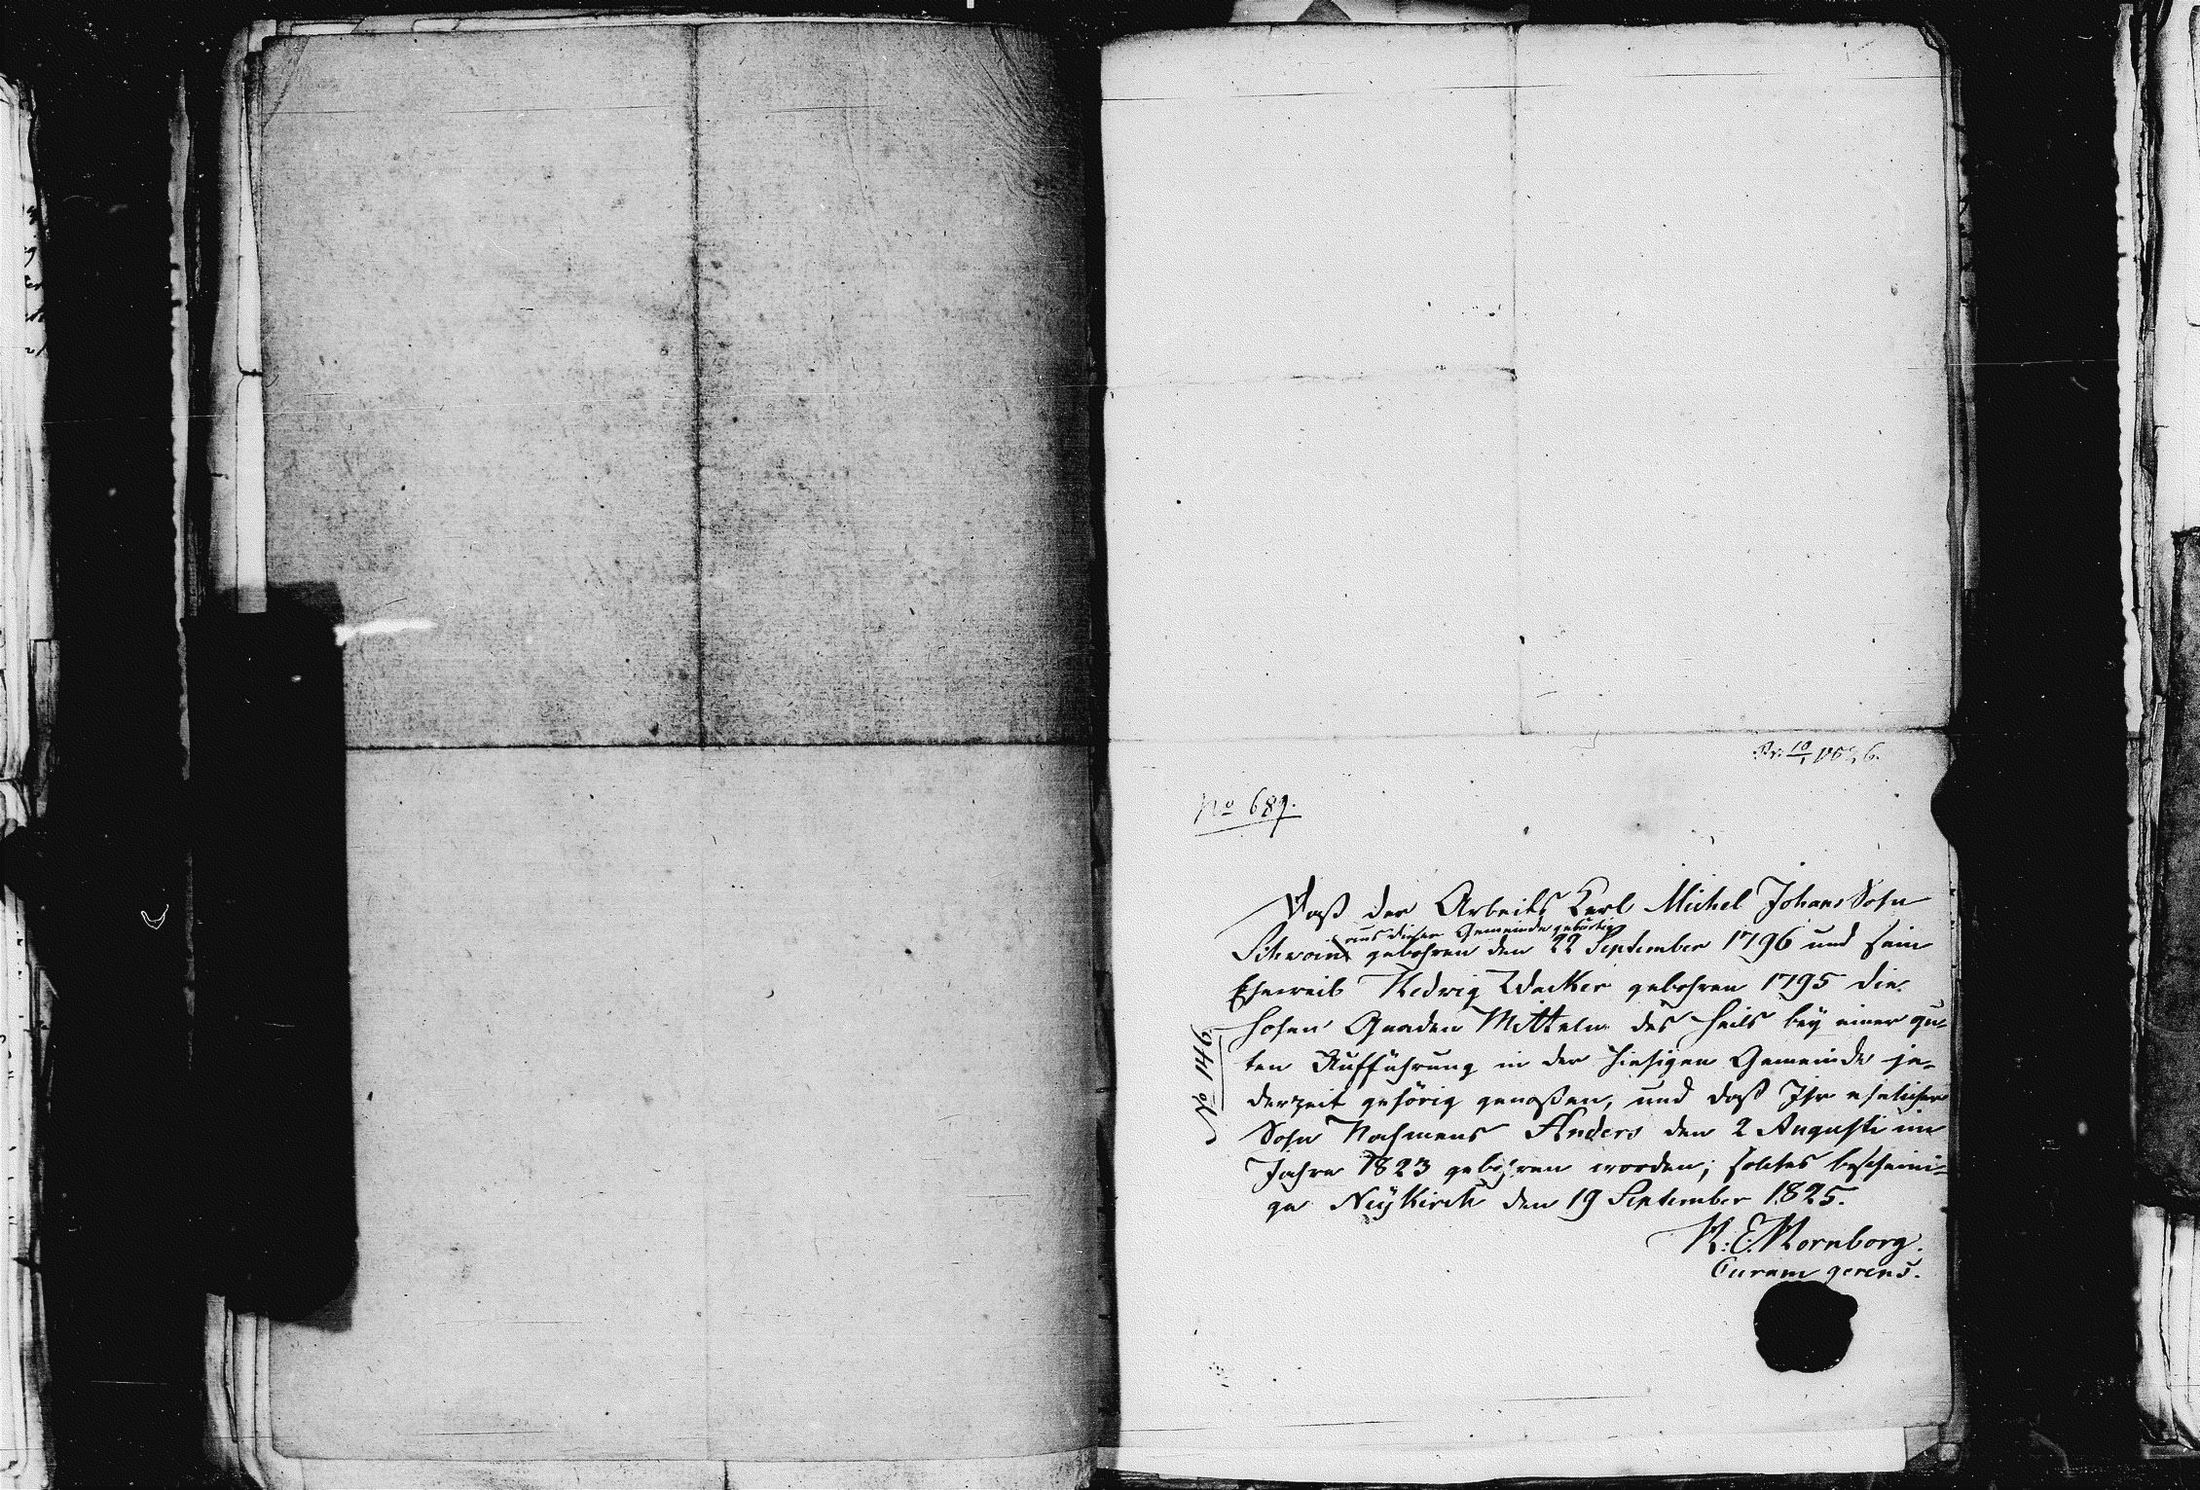 Pr. 10/1 1826.
No 689.
Daß der Arbeits Kerl Michel Johans Sohn
aus dieser Gemeinde gebürtig
Schwoin gebohren den 22 September 1796 und sein
Eheweib Hedwig Wacker gebohren 1795 die
hohen Gnaden Mitteln des Heils bey einer gu-
ten Aufführung in der hiesigen Gemeinde je-
derzeit gehörig genoßen, und daß Ihr ehelicher
Sohn Nahmens Anders den 2 Augusti im
Jahre 1823 gebohren worden; solches bescheini-
ge Neykirch den 19 September 1825.
K: E: Mornborg.
Curam gerens.
No 146